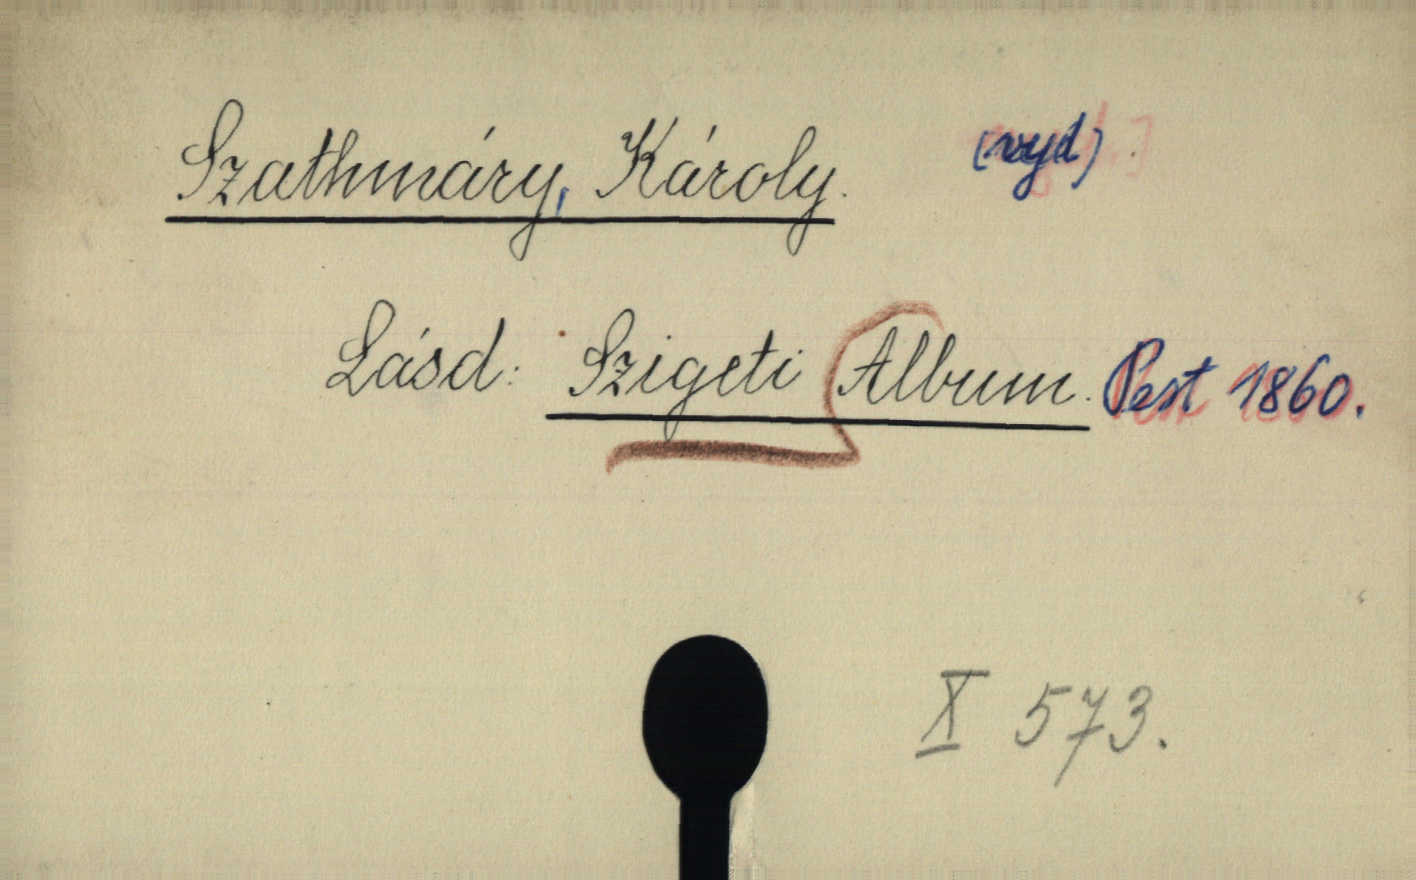 Szathmáry, Károly. (vyd)
Lásd: Szigeti Album. Pest 1860.
X 573.